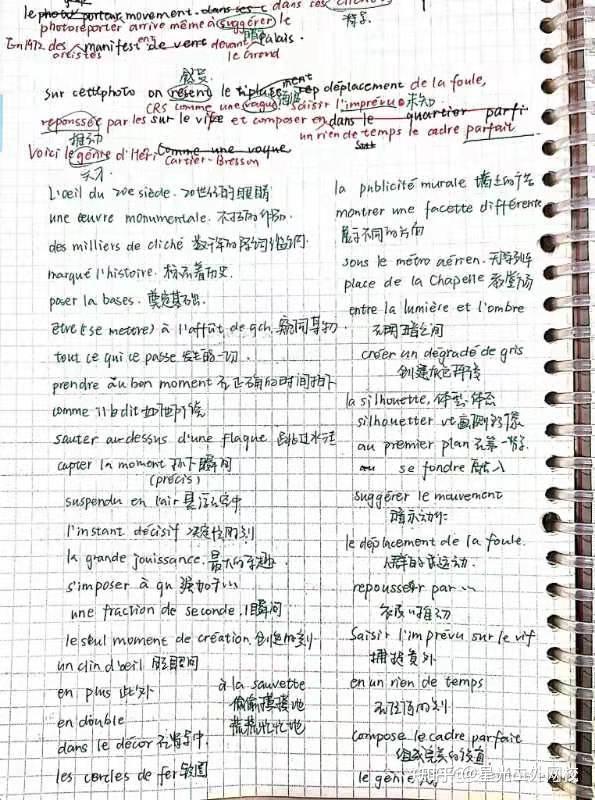 le photo porteur movement. dans ses clichés
photoreporter arrive même à suggérer le
En 1972 des manifest ent de vent devant palais.
artistes le Grand
Sur cette photo on resent le déplacement de la foule,
CRS comme une vague, saisir l'imprévu 未知
repoussée par les sur le vif et composer en dans le quartier parfi
推动 un rien de temps le cadre parfait
Voici le génie d'Hen Comme une vague
天才 Cartier-Bresson
L'oeil du 20e siècle. 20世纪的眼睛
une œuvre monumentale. 不朽的作品.
des milliers de cliché
marqué l'histoire. 标志着历史.
poser la bases. 奠定基础.
être (se metere) à l'affût de qch. 窥伺某物
tout ce qui ce passe 发生的一切.
prendre au bon moment 在正确的时间拍下
comme il le dit 如他所说
sauter au-dessus d'une flaque 跳过水洼
capter la moment 抓下瞬间
(précis)
suspendu en l'air 悬浮空中
l'instant décisif 决定性时刻
la grande jouissance. 最大的乐趣.
s'imposer à qn 强加于……
une fraction de seconde. 1瞬间
le seul moment de création. 创造时刻
un clin d'œil 眨眼间
en plus 此外
en double
dans le décor 在背景中.
les cercles de fer 铁圈
à la sauvette
偷偷摸摸地
慌慌忙忙地
la publicité murale 墙上的广告
montrer une facette différente
展示不同的方面
sous le métro aérien.
place de la Chapelle 教堂广场
entre la lumière et l'ombre
在明暗之间
créer un dégradé de gris
创建灰色阶梯
la silhouette. 体型. 体态
silhouetter vt 画侧影像
au premier plan
se fondre 融入
suggérer le mouvement
暗示动作
le déplacement de la foule.
人群的运动.
repousser par ...
被……推动
Saisir l'imprévu sur le vif
捕捉意外
en un rien de temps
compose le cadre parfait
组成完美的
le génie
知乎 @星光中外网校